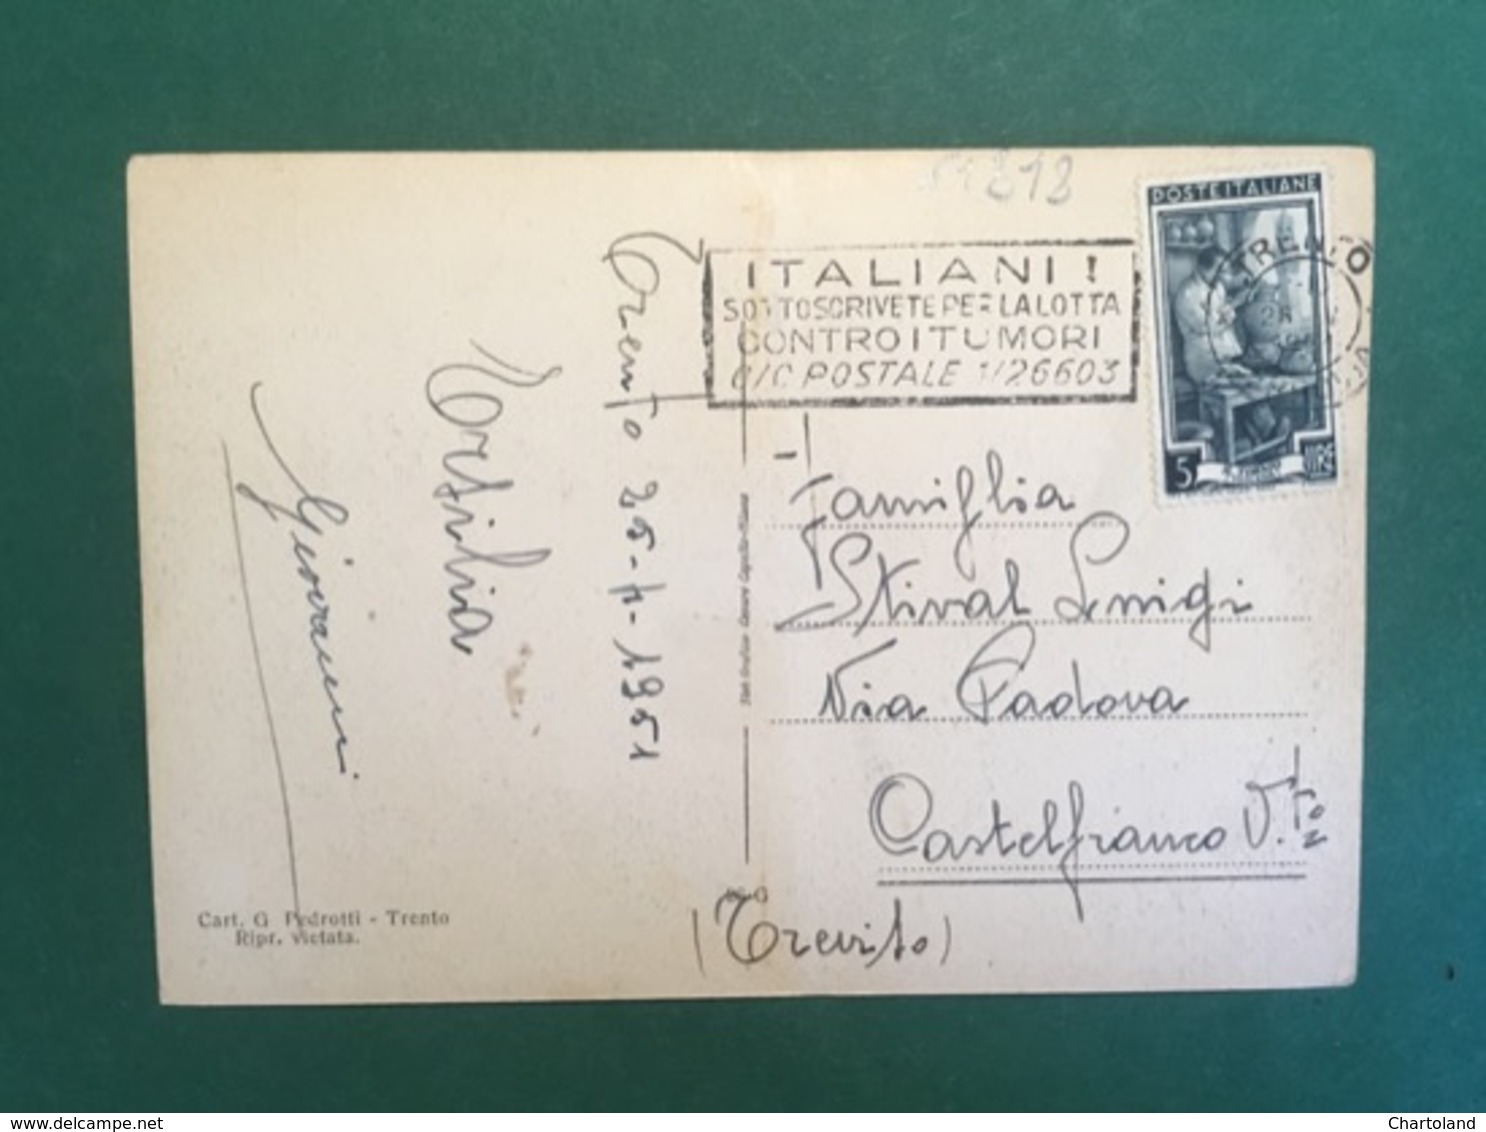 51818
POSTE ITALIANE
TRENTO
5
LIRE
ITALIANI!
SOTTOSCRIVETE PER LA LOTTA
CONTRO I TUMORI
C/C POSTALE 1/26603
Trento 25-4-1951
Ersilia
Giovanni
Famiglia
Stival Luigi
Via Padova
Castelfranco V.to
(Treviso)
Cart. G. Pedrotti - Trento
Ripr. vietata.
www.delcampe.net
Chartoland